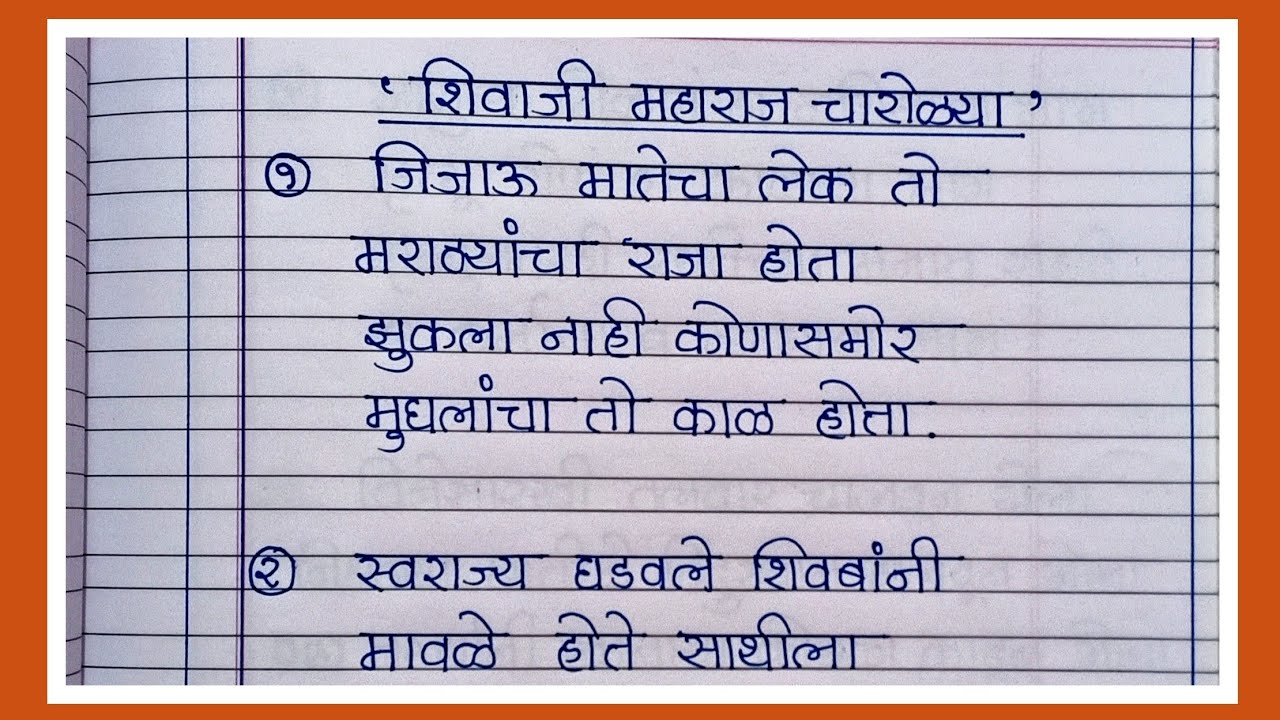 ‘ शिवाजी महाराज चारोळ्या ’
१ जिजाऊ मातेचा लेक तो
मराठ्यांचा राजा होता
झुकला नाही कोणासमोर
मुघलांचा तो काळ होता.
२ स्वराज्य घडवले शिवबांनी
मावळे होते साथीला